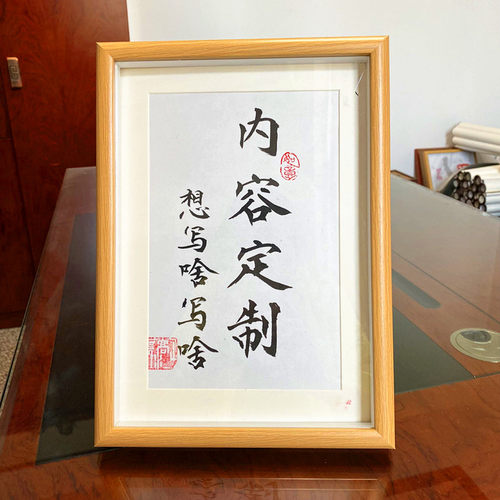 内容定制
想写啥写啥